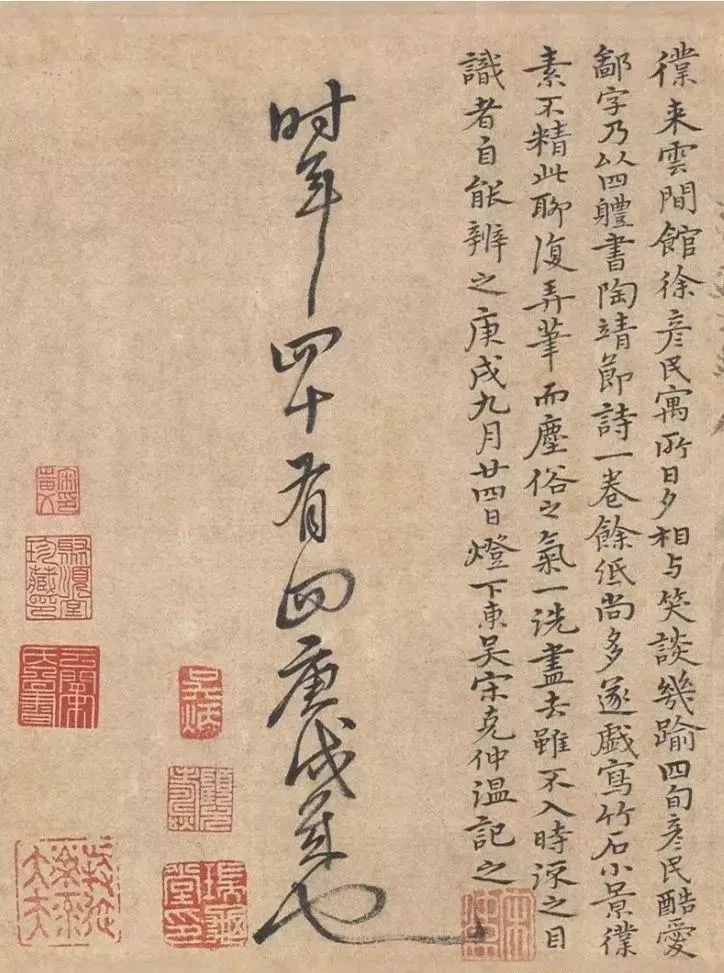 僕来雲間館徐彦民寓所日夕相与笑談幾踰四旬彦民酷愛
鄙字乃以四體書陶靖節詩一卷餘紙尚多遂戲寫竹石小景僕
素不精此聊復弄筆而塵俗之氣一洗盡去雖不入時流之目
識者自能辨之庚戌九月廿四日燈下東吴宋克仲温記之
时年四十有四庚戌歲也